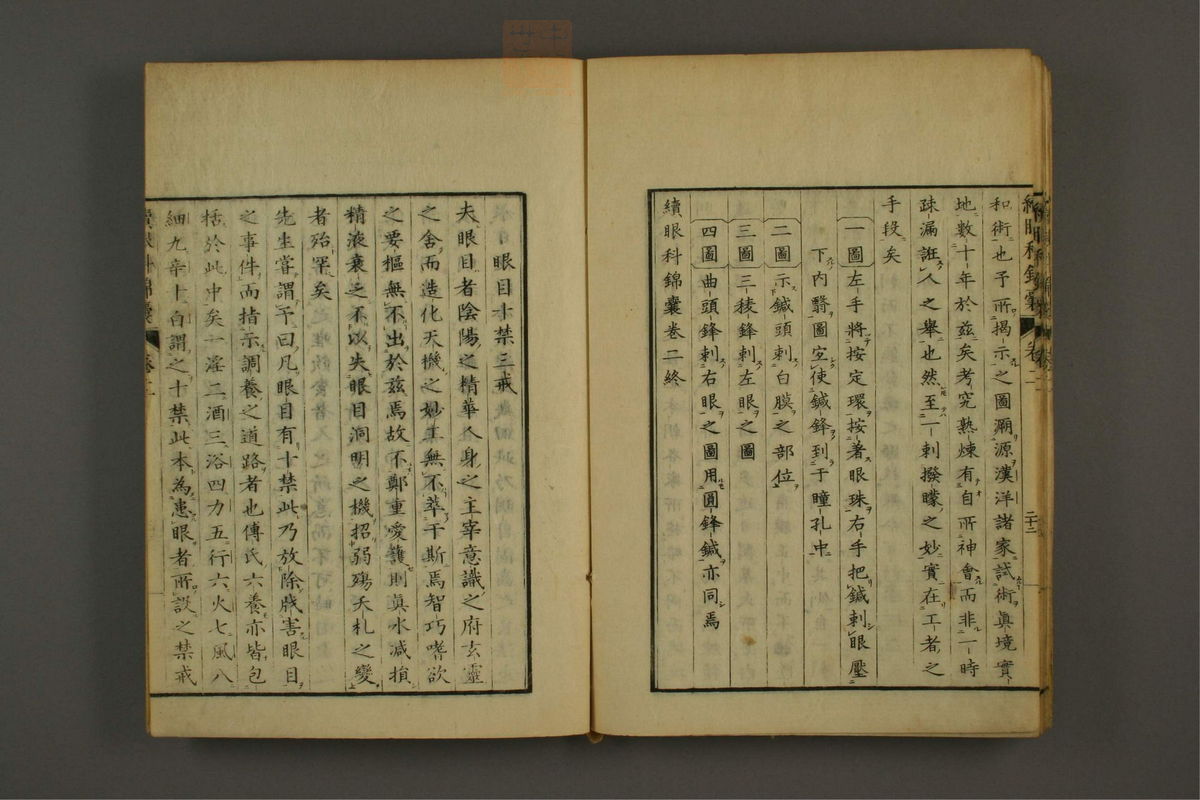 和術也予所揭示之圖溯源漢洋諸家試術眞境實
地數十年於茲矣考究熟煉有自所神會而非一時
疎漏誑人之舉也然至一刺撥矇之妙實在工者之
手段矣
一圖 左手將按定環按著眼珠右手把鍼刺眼壓
下內翳圖宜使鍼鋒到于瞳孔中
二圖 示鍼頭刺白膜之部位
三圖 三稜鋒刺左眼之圖
四圖 曲頭鋒刺右眼之圖用圓鋒鍼亦同焉
續眼科錦囊卷二終
眼目十禁三戒
夫眼目者陰陽之精華人身之主宰意識之府玄靈
之舍而造化天機之妙其無不萃于斯焉智巧嗜欲
之要樞無不出於茲焉故不鄭重愛護則眞水減損
精液衰乏不以失眼目洞明之機招弱殤夭札之變
者殆罕矣
先生嘗謂予曰凡眼目有十禁此乃放除戕害眼目
之事件而指示調養之道路者也傳氏六養亦皆包
括於此中矣一淫二酒三浴四力五行六火七風八
細九辛十白謂之十禁此本為患眼者所設之禁戒